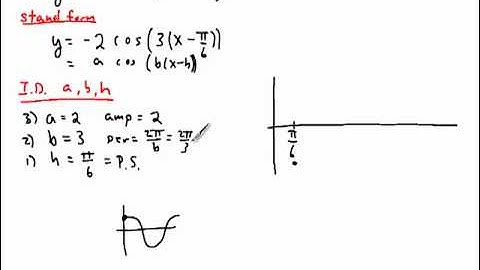 stand form
y = -2 cos(3(x - π/6))
= a cos(b(x-h))
I.D. a, b, h
3) a = 2 amp = 2
2) b = 3 per = 2π/b = 2π/3
1) h = π/6 = P.S.
π/6